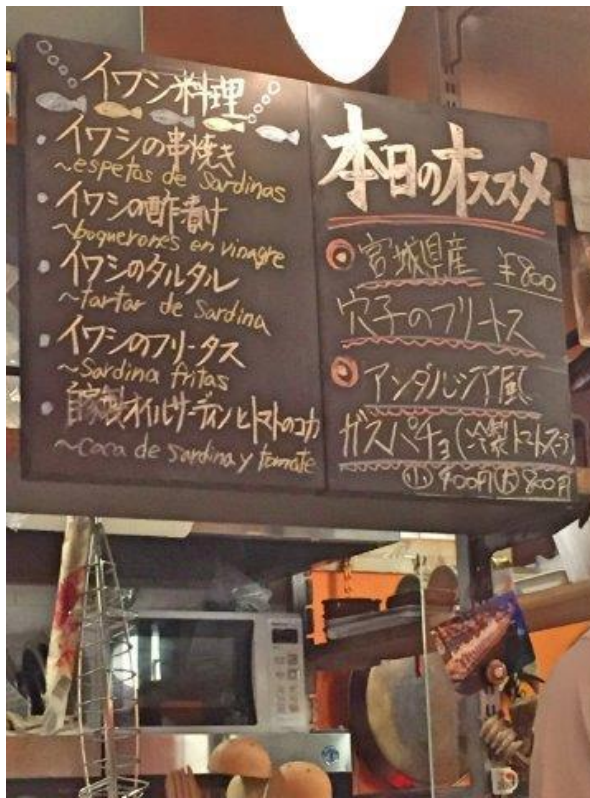 イワシ料理
・イワシの串焼き
~espetos de Sardinas
・イワシの酢漬け
~boquerones en vinagre
・イワシのタルタル
~tartar de Sardina
・イワシのフリータス
~Sardina fritas
・自家製オイルサーディンとトマトのコカ
~coca de sardina y tomate
本日のオススメ
◎宮城県産 ¥800
穴子のフリートス
◎アンダルシア風
ガスパチョ(冷製トマトスープ)
小 400円 大 800円